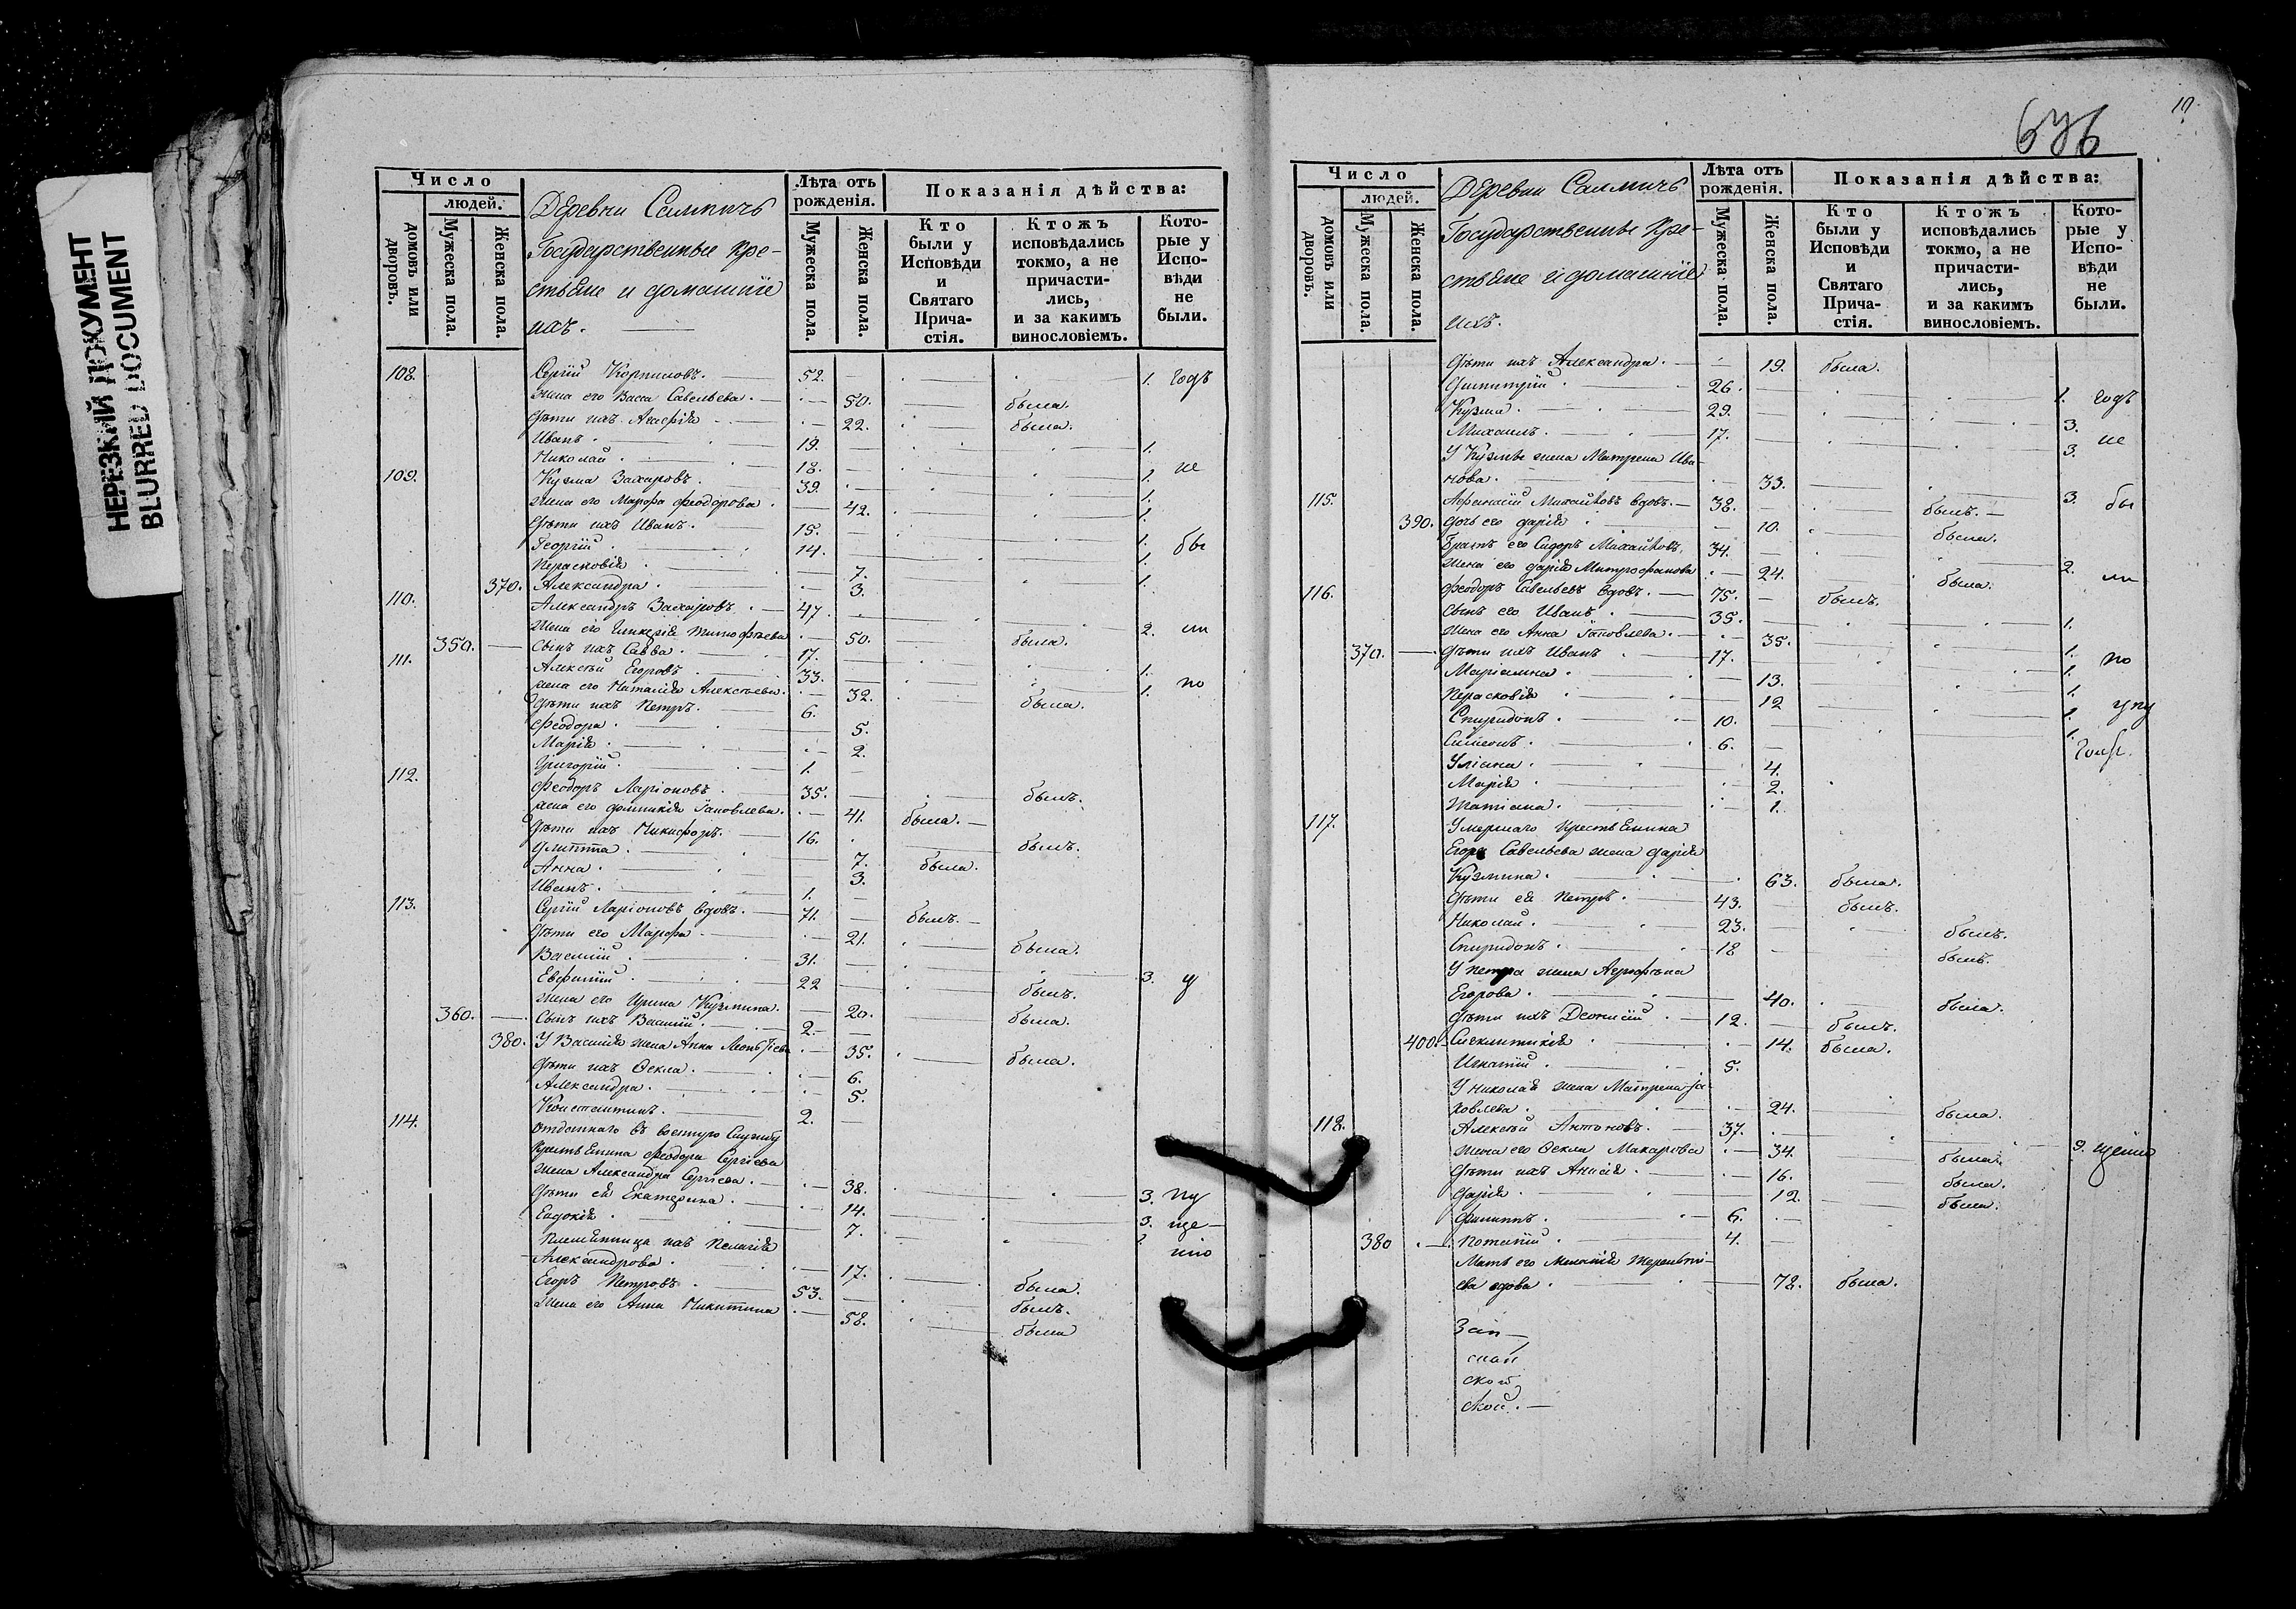 НЕРЕЗКИЙ ДОКУМЕНТ
BLURRED DOCUMENT
Число
людей.
домовъ или дворовъ.
Мужеска пола.
Женска пола.
Деревни
Государственные Кре-
стьяне и домашніе
ихъ.
Лѣта отъ рожденія.
Мужеска пола.
Женска пола.
Показанія дѣйства:
Кто были у Исповѣди и Святаго Прича-стія.
Ктожъ исповѣдались токмо, а не причасти-лись, и за какимъ винословіемъ.
Кото-рые у Испо-вѣди не были.
108. Сергій Корниловъ. 52. 1. годъ
жена его Васса Савельева. 50. была.
дѣти ихъ Агафія 22. была.
Иванъ. 19. 1.
Николай. 18. 1. не
109. Кузма Захаровъ. 39. 1.
жена его Марфа Феодорова. 42. 1.
дѣти ихъ Иванъ. 15. 1. бы
Георгій. 14. 1.
Парасковія. 7. 1.
370. Александра. 3.
110. Александръ Захаровъ. 47. 2. ли
жена его Гликерія Тимофѣева 50. была.
350. Сынъ ихъ Савва. 17. 1.
111. Алексѣй Егоровъ. 33. 1. по
жена его Наталія Алексѣева. 32. была.
дѣти ихъ Петръ. 6.
Феодора. 5.
Марія. 2.
Григорій. 1.
112. Феодоръ Ларіоновъ. 35. былъ.
жена его Домникія Іаковлева. 41. была.
дѣти ихъ Никифоръ. 16. былъ.
Улитта. 7. была.
Анна. 3.
Иванъ. 1.
113. Сергій Ларіоновъ вдовъ. 71. былъ.
дѣти его Марфа. 21. была.
Василій. 31. 3. у
Евфимій. 22 былъ.
жена его Ирина Кузмина. 20. была.
360. Сынъ ихъ Василій. 2.
380. У Василія жена Анна Леонтіева 35. была.
дѣти ихъ Ѳекла. 6.
Александра. 5.
Константинъ. 2.
114. отданнаго въ военную Службу
крестьянина Феодора Сергіева
жена Александра Сергіева. 38. 3. пу
дѣти ея Екатерина. 14. 3. ще-
Евдокія. 7. 1. нію
Племянница ихъ Пелагія
Александрова. 17. была.
Егоръ Петровъ. 53. былъ.
жена его Анна Никитина 58. была
676
19.
Число
людей.
домовъ или дворовъ.
Мужеска пола.
Женска пола.
Деревни
Государственные Кре-
стьяне и домашніе
ихъ.
Лѣта отъ рожденія.
Мужеска пола.
Женска пола.
Показанія дѣйства:
Кто были у Исповѣди и Святаго Прича-стія.
Ктожъ исповѣдались токмо, а не причасти-лись, и за какимъ винословіемъ.
Кото-рые у Испо-вѣди не были.
дѣти ихъ Александра. 19. была.
Димитрій. 26. 1. годъ
Кузма. 29. 3.
Михаилъ. 17. 3. не
У Кузмы жена Матрена Ива-
нова. 33. 3. бы
115. Афанасій Михайловъ вдовъ. 38. былъ.
390. дочь его Дарія. 10. была.
Братъ его Сидоръ Михайловъ. 34. 2. ли
жена его Дарія Митрофанова 24. была.
116. Феодоръ Савельевъ вдовъ. 75. былъ.
сынъ его Иванъ. 35. 1.
жена его Анна Іаковлева. 35. 1.
370. дѣти ихъ Иванъ 17. 1. по
Маріамна. 13. 1.
Парасковія 12 1. упу
Спиридонъ. 10. 1.
Симеонъ. 6.
Уліана. 4.
Марія 2.
Татіана. 1.
117. Умершаго крестьянина
Егора Савельева жена Дарія
Кузмина. 63. была.
дѣти ея Петръ. 43. былъ.
Николай. 23. былъ.
Спиридонъ. 18 былъ.
У Петра жена Агрофена
Егорова. 40. была.
дѣти ихъ Деонисій. 12. былъ.
400. Синклитикія 14. была.
Игнатій. 5.
У Николая жена Матрена Іа-
ковлева. 24. была.
118. Алексѣй Антоновъ. 37. 3. щенію
жена его Ѳекла Макарова 34. была.
дѣти ихъ Анисія 16. была.
Дарія. 12. была.
Филиппъ. 6.
380 Потапій. 4.
Мать его Меланія Теренті-
ева вдова. 78. была.